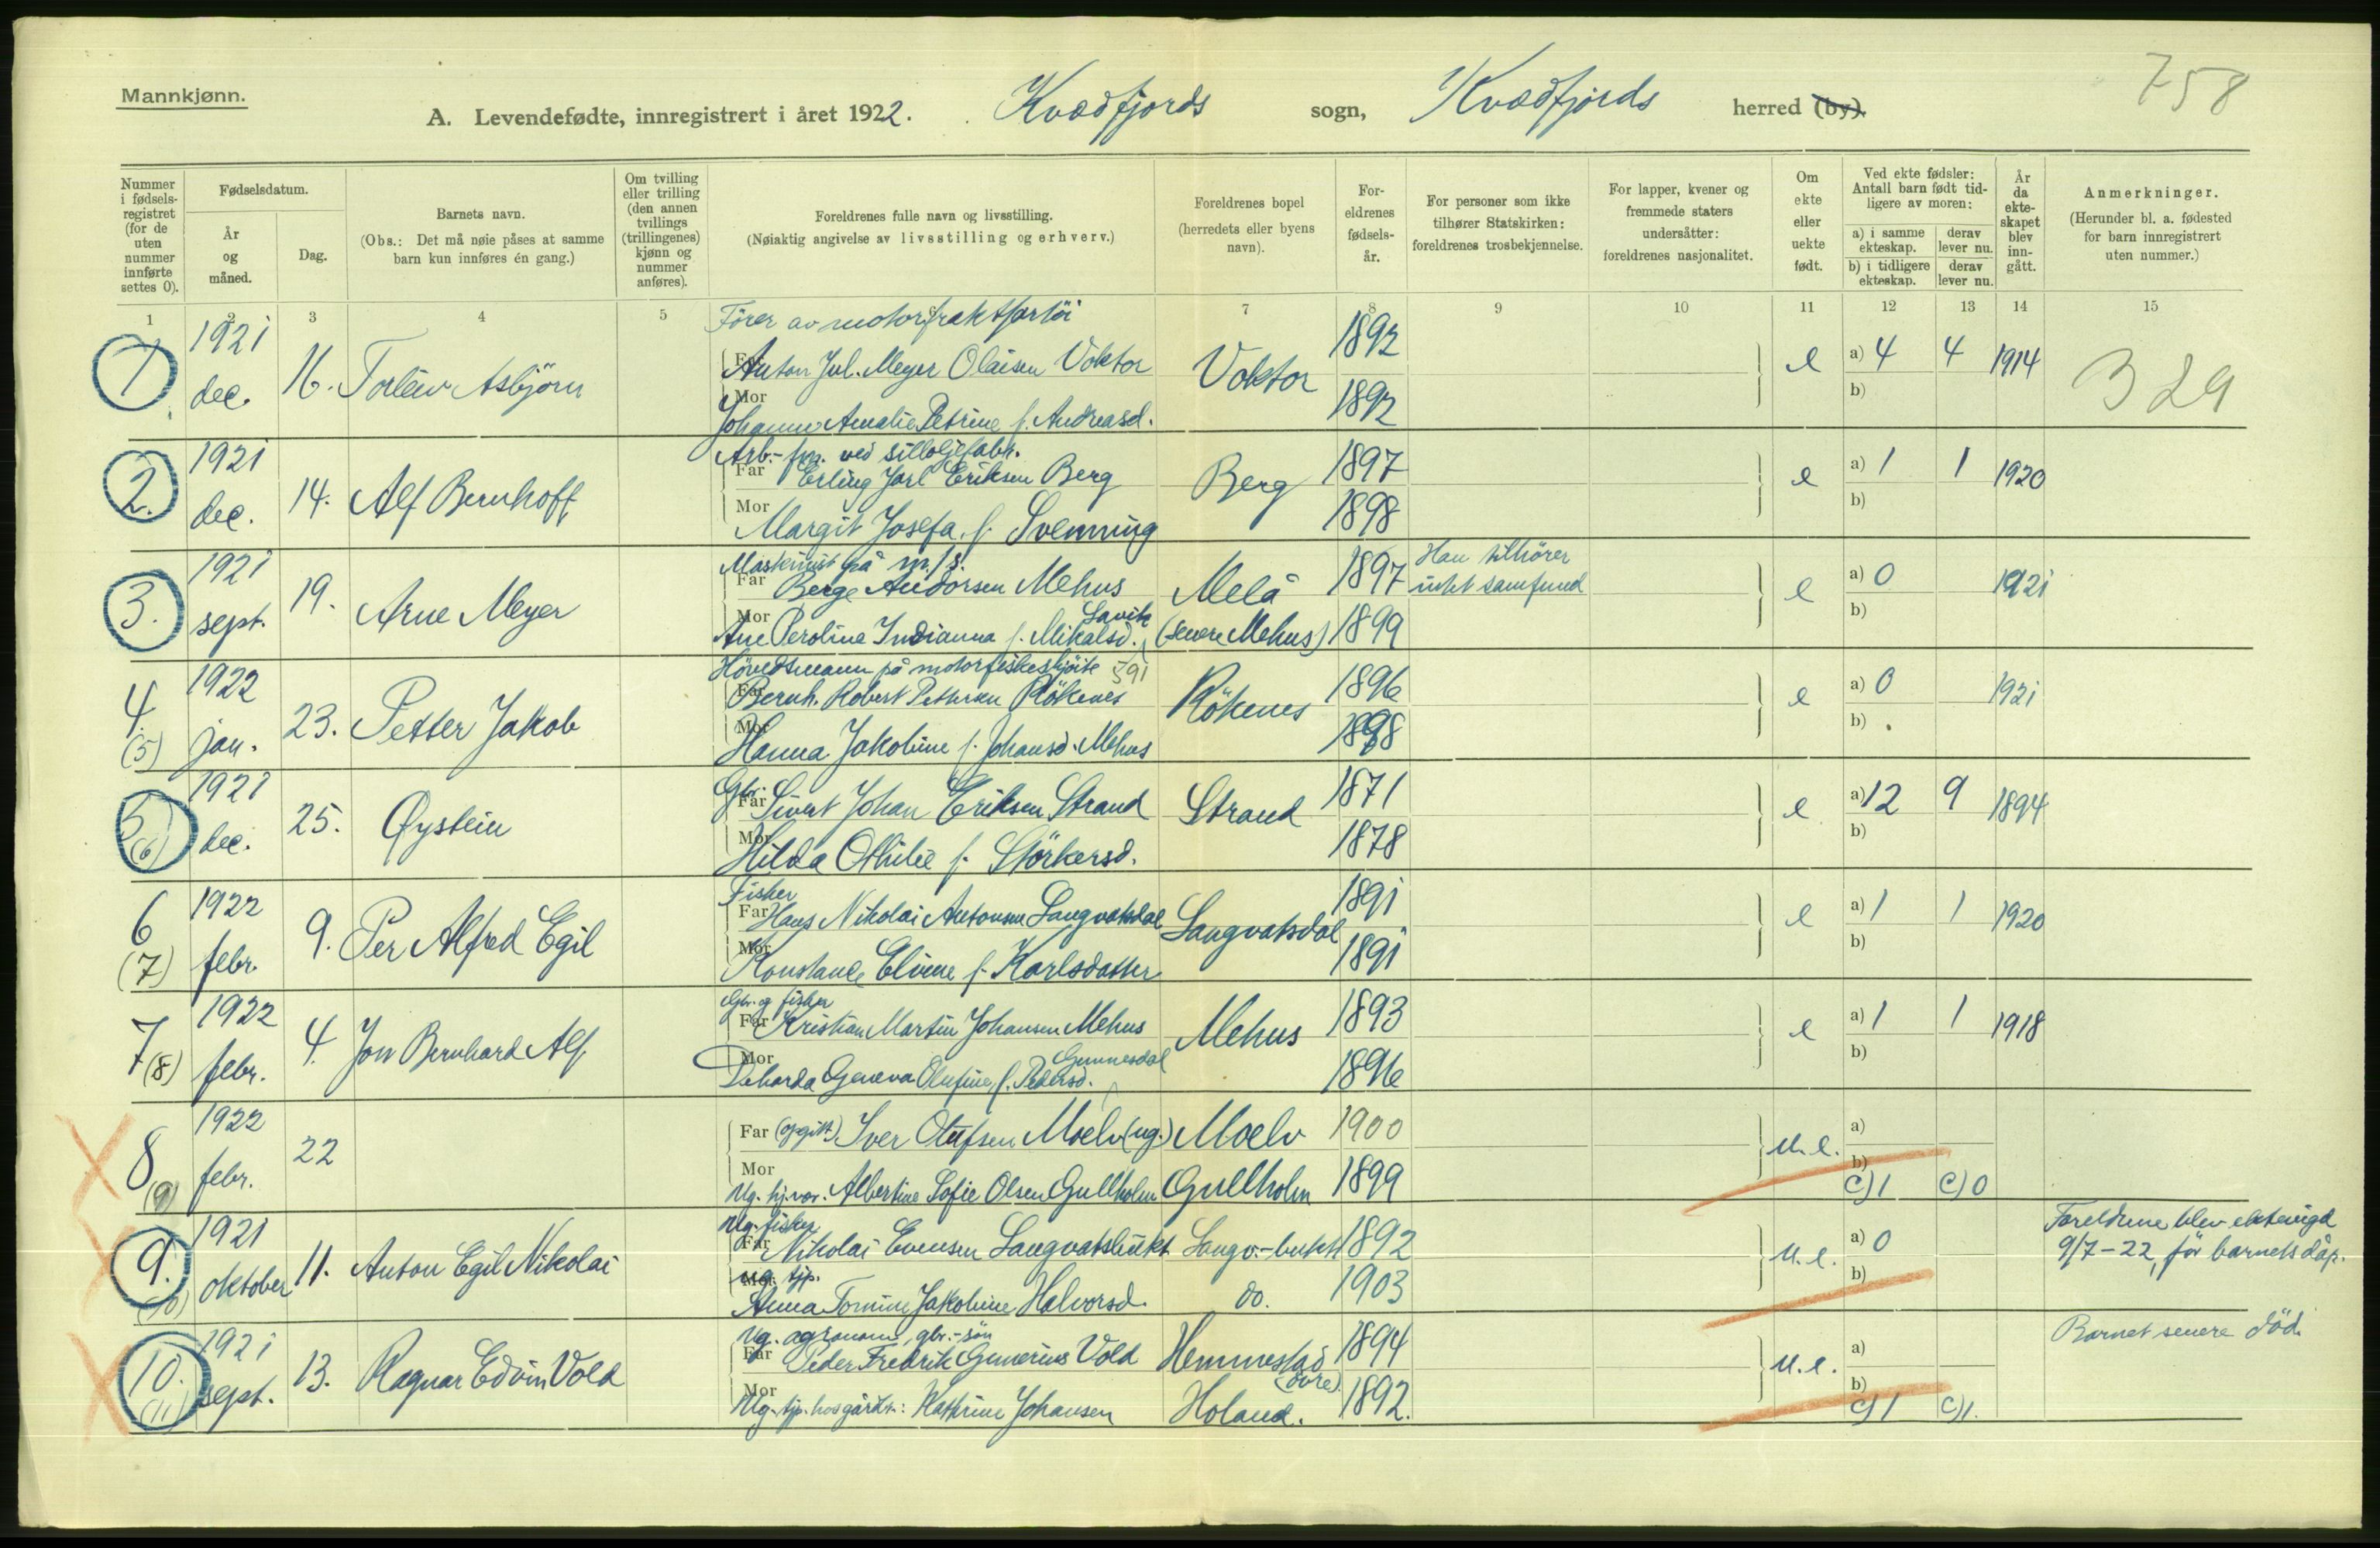 Mannkjønn.
758
A. Levendefødte, innregistrert i året 1922. Kvædfjords sogn, Kvædfjords herred (by).
Nummer i fødsels-registret (for de uten nummer innførte settes 0).
Fødselsdatum.
År og måned.
Dag.
Barnets navn.
(Obs.: Det må nøie påses at samme barn kun innføres én gang.)
Om tvilling eller trilling (den annen tvillings (trillingenes) kjønn og nummer anføres).
Foreldrenes fulle navn og livsstilling.
(Nøiaktig angivelse av livsstilling og erhverv.)
Foreldrenes bopel (herredets eller byens navn).
For-eldrenes fødsels-år.
For personer som ikke tilhører Statskirken: foreldrenes trosbekjennelse.
For lapper, kvener og fremmede staters undersåtter: foreldrenes nasjonalitet.
Om ekte eller uekte født.
Ved ekte fødsler: Antall barn født tid-ligere av moren:
a) i samme ekteskap. derav lever nu.
b) i tidligere ekteskap. derav lever nu.
År da ekte-skapet blev inn-gått.
Anmerkninger.
(Herunder bl. a. fødested for barn innregistrert uten nummer.)
1 2 3 4 5 6 7 8 9 10 11 12 13 14 15
Förer av motorfraktfartöi
1 1921 dec. 16. Torleiv Asbjörn Far Anton Jul. Meyer Olaisen Voktor Voktor 1892 e a) 4 4 1914 329
Mor Johanna Amalie Petrine f. Andreasd. 1892 b)
Arb.-fm. ved silloljefabr.
2. 1921 dec. 14. Alf Bernhoff Far Erling Jarl Eriksen Berg Berg 1897 e a) 1 1 1920
Mor Margit Josefa f. Svenning 1898 b)
Maskinist på m/s.
3. 1921 sept. 19. Arne Meyer Far Berge Andorsen Mehus Melå 1897 Han tilhörer intet samfund e a) 0 1921
Mor Ane Peroline Indianna f. Mikalsd. Lavik (senere Mehus) 1899 b)
Hövedsmann på motorfiskeskjöite 391
4. (5) 1922 jan. 23. Petter Jakob Far Bernh. Robert Pettersen Rökenes Rökenes 1896 e a) 0 1921
Mor Hanna Jakobine f. Johansd. Mehus 1898 b)
5 (6) 1921 dec. 25. Øystein Gbr. Far Sivert Johan Eriksen Strand Strand 1871 e a) 12 9 1894
Mor Hilda Othilie f. Störkersd. 1878 b)
Fisker
6 (7) 1922 febr. 9. Per Alfred Egil Far Hans Nikolai Antonsen Langvatsdal Langvatsdal 1891 e a) 1 1 1920
Mor Konstance Elvine f. Karlsdatter 1891 b)
Gbr. og fisker
7 (8) 1922 febr. 4. Jon Bernhard Alf Far Kristian Martin Johansen Mehus Mehus 1893 e a) 1 1 1918
Mor Geneva Olufine f. Pedersd. Gunnesdal 1896 b)
8 (9) 1922 febr. 22 Far (opgitt) Iver Olufsen Moelv (ug.) Moelv 1900 u.e. a)
Mor Ug. hj.vær. Albertine Sofie Olsen Gullholm Gullholm 1899 b) c) 1 c) 0
Ug. fisker
9. (10) 1921 oktober 11. Anton Egil Nikolai Far Nikolai Evensen Langvatsbukt Langv.-bukt 1892 u.e. a) 0 Foreldrene blev ektevigd 9/7-22, för barnets dåp.
Ug. tjp.
Mor Anna Tomine Jakobine Halvorsd. do. 1903 b)
Ug. agronom, gbr.-sön
10. (11) 1921 sept. 13. Ragnar Edvin Vold Far Peder Fredrik Gunerius Vold Hemmestad (övre) 1894 u.e. a) Barnet senere död.
Mor Ug. tjp. hos gårdbr.: Kathrine Johansen Holand. 1892. b) c) 1 c) 1.